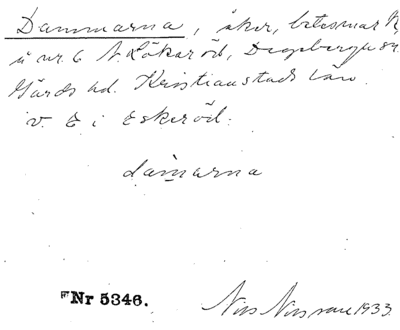 Dammarna, åker, betesmark
å nr 6 N. Lökaröd, Degeberga sn
Gärds hd. Kristianstads län.
v. E i Eskeröd.
dam̀arna
Nr 5346.
1933.